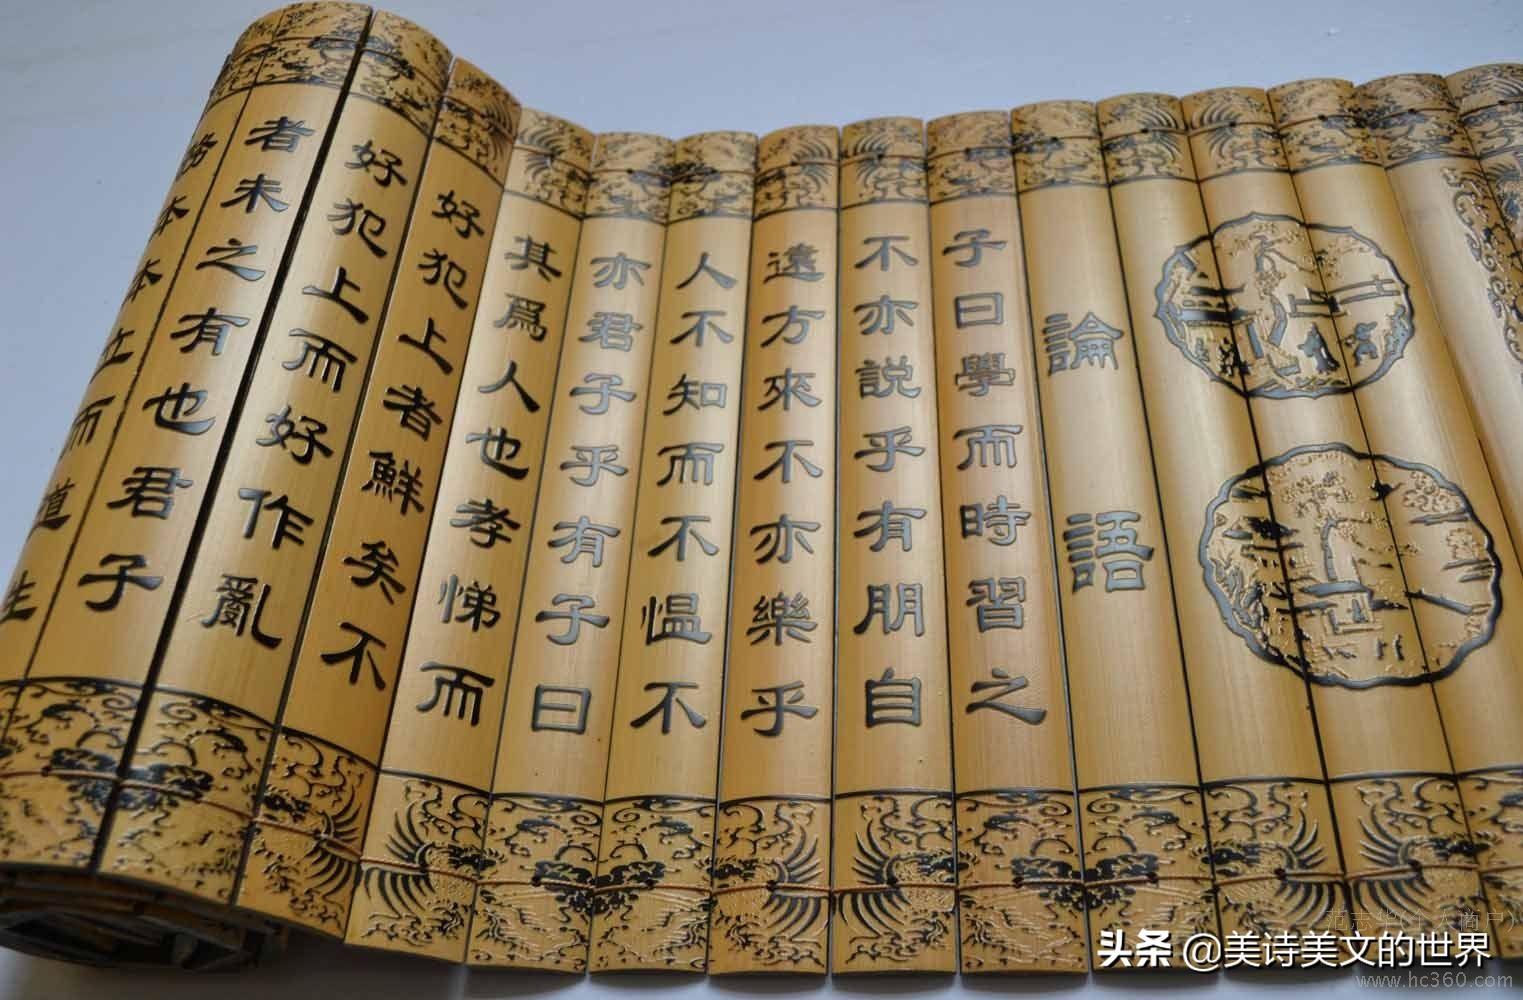 論語
子曰學而時習之
不亦説乎有朋自
遠方來不亦樂乎
人不知而不愠不
亦君子乎有子曰
其爲人也孝悌而
好犯上者鮮矣不
好犯上而好作亂
者未之有也君子
務本本立而道生
范志华(个人商户)
头条 @美诗美文的世界
www.hc360.com